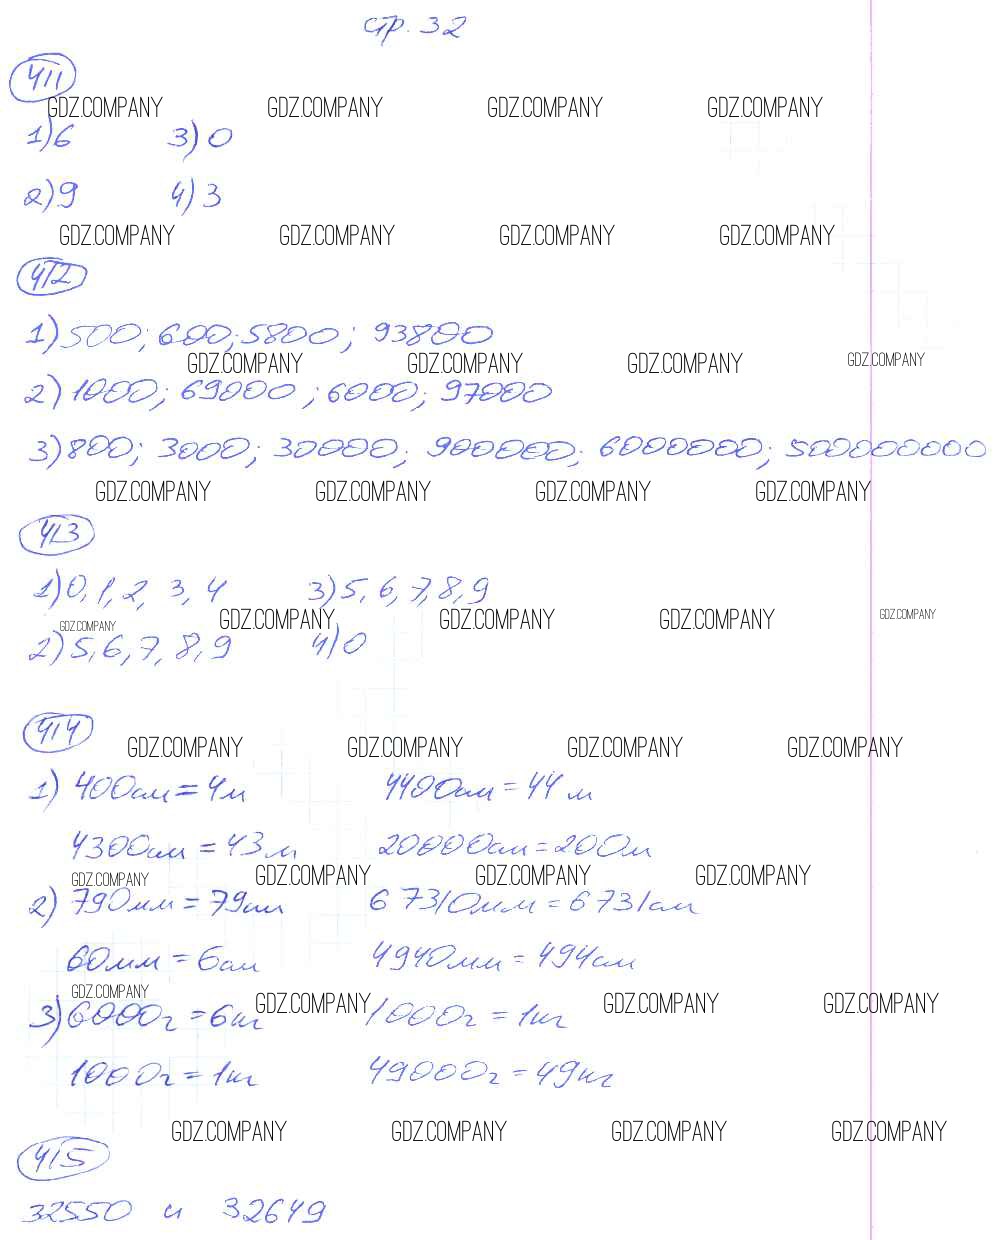 стр. 32
411
GDZ.COMPANY GDZ.COMPANY GDZ.COMPANY GDZ.COMPANY
1) 6 3) 0
2) 9 4) 3
GDZ.COMPANY GDZ.COMPANY GDZ.COMPANY GDZ.COMPANY
412
1) 500; 600; 5800; 93800
GDZ.COMPANY GDZ.COMPANY GDZ.COMPANY GDZ.COMPANY
2) 1000; 69000; 6000; 97000
3) 800; 3000; 30000; 900000; 6000000; 500000000
GDZ.COMPANY GDZ.COMPANY GDZ.COMPANY GDZ.COMPANY
413
1) 0, 1, 2, 3, 4 3) 5, 6, 7, 8, 9
GDZ.COMPANY GDZ.COMPANY GDZ.COMPANY GDZ.COMPANY GDZ.COMPANY
2) 5, 6, 7, 8, 9 4) 0
414
GDZ.COMPANY GDZ.COMPANY GDZ.COMPANY GDZ.COMPANY
1) 400см = 4м 4400см = 44м
4300см = 43м 20000см = 200м
GDZ.COMPANY GDZ.COMPANY GDZ.COMPANY GDZ.COMPANY
2) 790мм = 79см 67310мм = 6731см
60мм = 6см 4940мм = 494см
GDZ.COMPANY GDZ.COMPANY GDZ.COMPANY GDZ.COMPANY
3) 6000г = 6кг 1000г = 1кг
1000г = 1кг 49000г = 49кг
GDZ.COMPANY GDZ.COMPANY GDZ.COMPANY GDZ.COMPANY
415
32550 и 32649